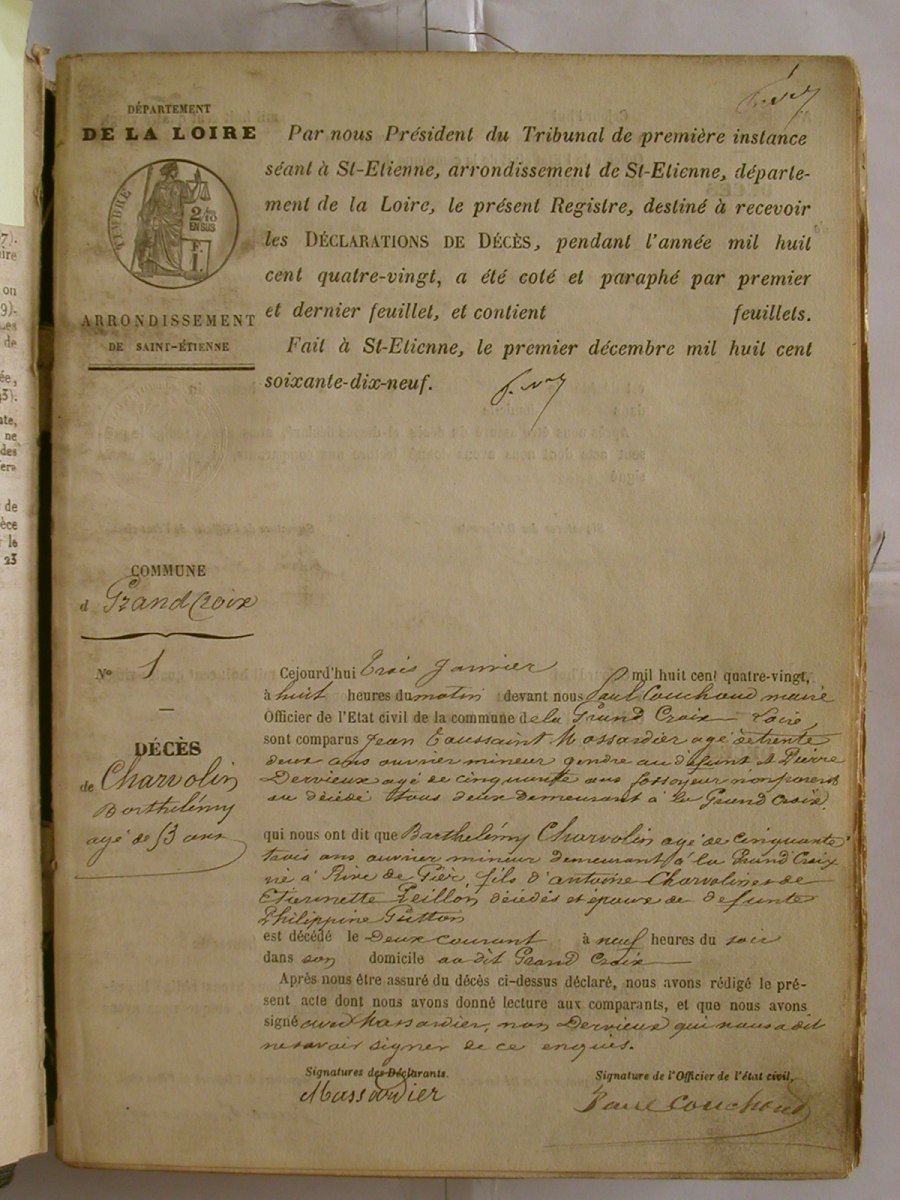 DÉPARTEMENT
DE LA LOIRE
TIMBRE
2/10
EN SUS
ARRONDISSEMENT
DE SAINT-ÉTIENNE
Par nous Président du Tribunal de première instance
séant à St-Etienne, arrondissement de St-Etienne, départe-
ment de la Loire, le présent Registre, destiné à recevoir
les DÉCLARATIONS DE DÉCÈS, pendant l'année mil huit
cent quatre-vingt, a été coté et paraphé par premier
et dernier feuillet, et contient feuillets.
Fait à St-Etienne, le premier décembre mil huit cent
soixante-dix-neuf.
COMMUNE
d Grand Croix
N° 1
DÉCÈS
de Charvolin
Barthélémy
agé de 53 ans
Cejourd'hui trois Janvier mil huit cent quatre-vingt,
à huit heures du matin devant nous Paul Couchoud maire
Officier de l'Etat civil de la commune de la Grand Croix Loire
sont comparus Jean Toussaint Massardier agé de trente
deux ans ouvrier mineur gendre au défunt & Pierre
Dervieux agé de cinquante ans fossoyeur non parent
au décédé tous deux demeurant à la Grand Croix
qui nous ont dit que Barthélémy Charvolin agé de cinquante
trois ans ouvrier mineur demeurant à la Grand Croix
né à Rive de Gier, fils d'antoine Charvolin et de
Etiennette Peillon, décédés et époux de defunte
Philippine
est décédé le Deux courant à neuf heures du soir
dans son domicile au dit Grand Croix
Après nous être assuré du décès ci-dessus déclaré, nous avons rédigé le pré-
sent acte dont nous avons donné lecture aux comparants, et que nous avons
signé avec Massardier, non Dervieux qui nous a dit
ne savoir signer de ce enquis.
Signatures des Déclarants.
Massardier
Signature de l'Officier de l'état civil,
Paul Couchoud